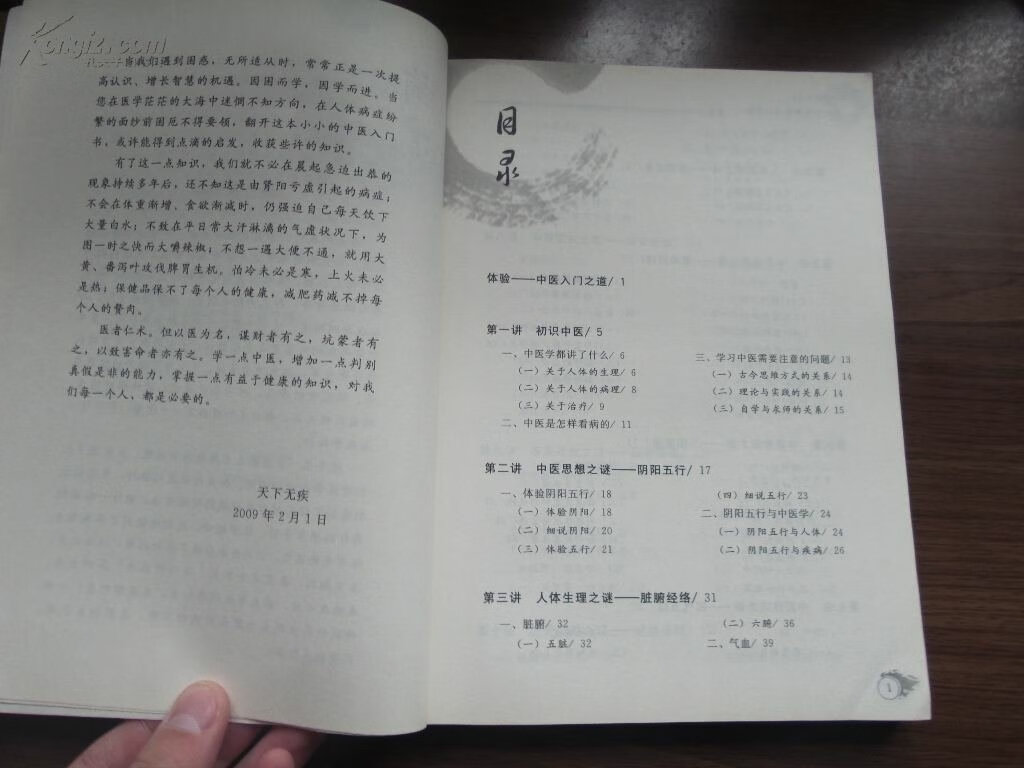 Kongfz.com
当我们遇到困惑，无所适从时，常常正是一次提
高认识、增长智慧的机遇。因困而学，因学而进。当
您在医学茫茫的大海中迷惘不知方向，在人体病症纷
繁的面纱前困厄不得要领，翻开这本小小的中医入门
书，或许能得到点滴的启发，收获些许的知识。
有了这一点知识，我们就不必在晨起急迫出恭的
现象持续多年后，还不知这是由肾阳亏虚引起的病症；
不会在体重渐增、食欲渐减时，仍强迫自己每天饮下
大量白水；不致在平日常大汗淋漓的气虚状况下，为
图一时之快而大嚼辣椒；不想一遇大便不通，就用大
黄、番泻叶攻伐脾胃生机。怕冷未必是寒，上火未必
是热；保健品保不了每个人的健康，减肥药减不掉每
个人的赘肉。
医者仁术。但以医为名，谋财者有之，坑蒙者有
之，以致害命者亦有之。学一点中医，增加一点判别
真假是非的能力，掌握一点有益于健康的知识，对我
们每一个人，都是必要的。
天下无疾
2009年2月1日
目录
体验——中医入门之道/ 1
第一讲 初识中医/ 5
一、中医学都讲了什么/ 6
（一）关于人体的生理/ 6
（二）关于人体的病理/ 8
（三）关于治疗/ 9
二、中医是怎样看病的/ 11
三、学习中医需要注意的问题/ 13
（一）古今思维方式的关系/ 14
（二）理论与实践的关系/ 14
（三）自学与求师的关系/ 15
第二讲 中医思想之谜——阴阳五行/ 17
一、体验阴阳五行/ 18
（一）体验阴阳/ 18
（二）细说阴阳/ 20
（三）体验五行/ 21
（四）细说五行/ 23
二、阴阳五行与中医学/ 24
（一）阴阳五行与人体/ 24
（二）阴阳五行与疾病/ 26
第三讲 人体生理之谜——脏腑经络/ 31
一、脏腑/ 32
（一）五脏/ 32
（二）六腑/ 36
二、气血/ 39
1